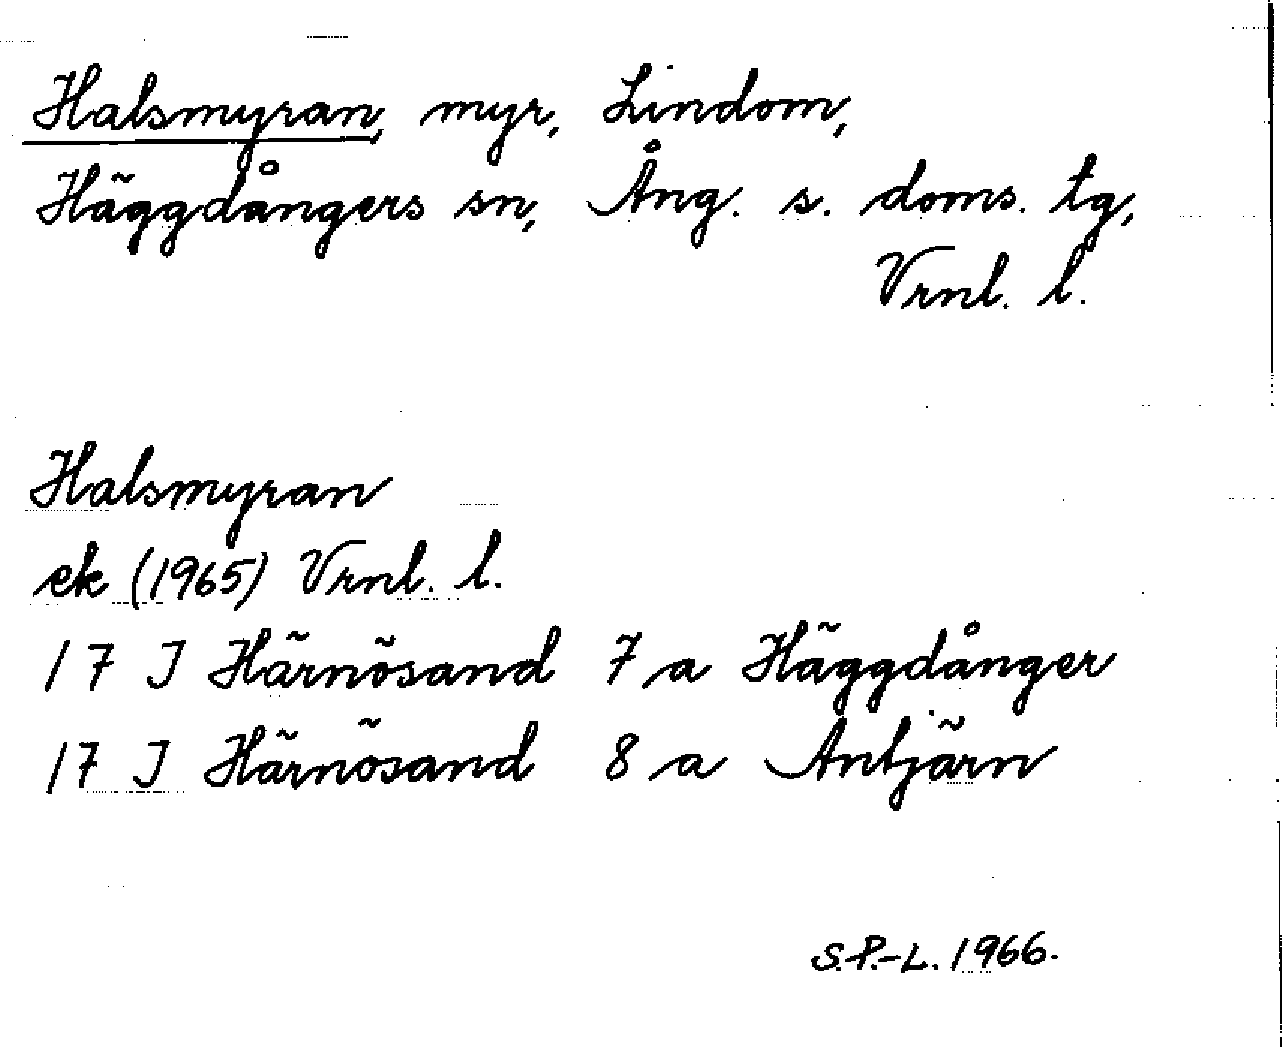 Halsmyran, myr, Lindom,
Häggdångers sn, Ång. s. doms. tg,
Vrnl. l.
Halsmyran
ek (1965) Vrnl. l.
17 I Härnösand 7 a Häggdånger
17 I Härnösand 8 a Antjärn
S.P.-L. 1966.